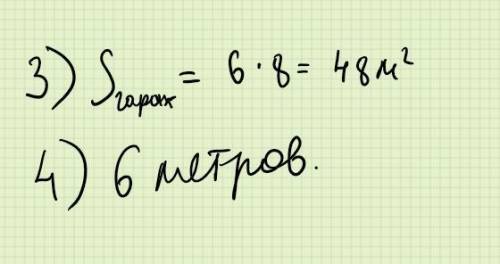 3) S гараж = 6 · 8 = 48 м²
4) 6 метров.